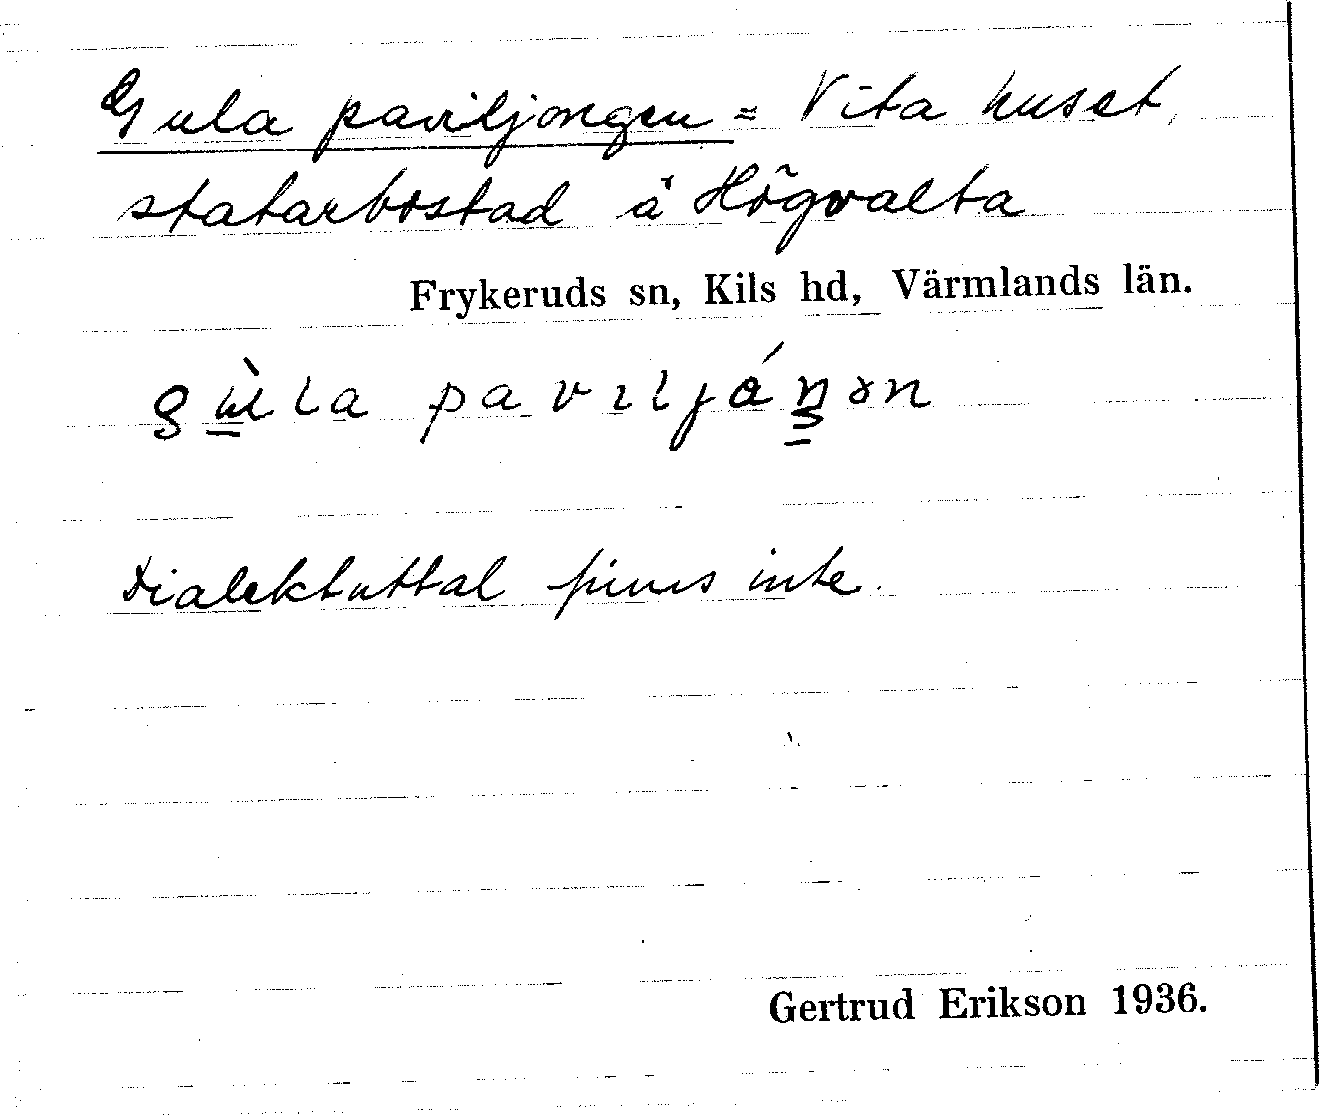 Gula paviljongen = Vita huset,
statarbostad å Högvalta
Frykeruds sn, Kils hd, Värmlands län.
gù̱la pavɪljáŋ̱ən
Dialektuttal finns inte.
Gertrud Erikson 1936.